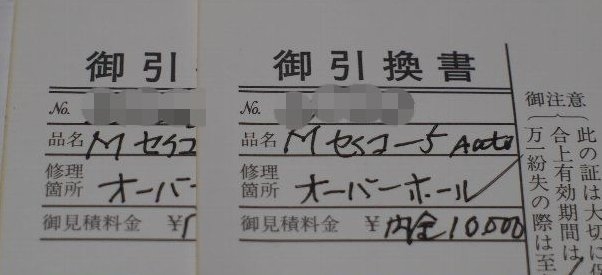 御引
No.
品名 M セイコ
修理
箇所 オーバー
御見積料金 ¥
御引換書
No.
品名 M セイコー5 Auto
修理
箇所 オーバーホール
御見積料金 ¥内金10,500
御注意
此の証は大切に
合上有効期間は
万一紛失の際は至